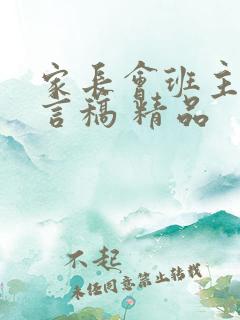 家长会班主
言稿 精品
不起
未经同意禁止转载